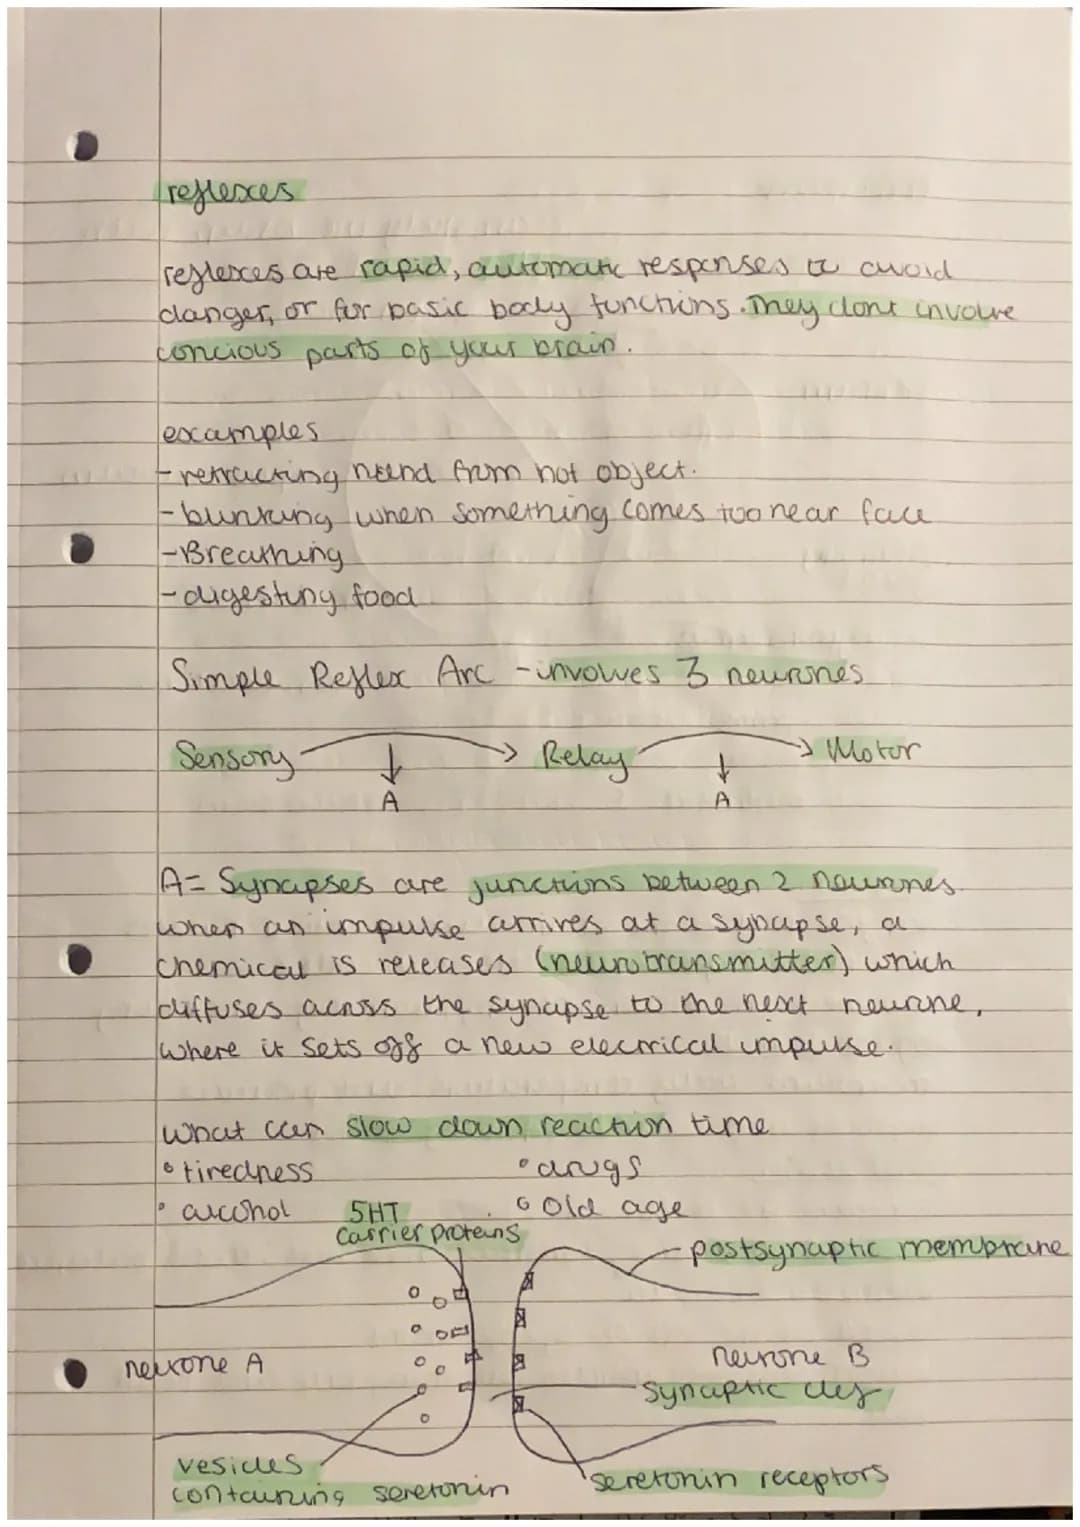 reflexes
reflexes are rapid, automatic responses to avoid
danger, or for basic body functions. They dont involve
concious parts of your brain.
examples
- retracting hand from hot object.
- blinking when something comes too near face
- Breathing
- digesting food
Simple Reflex Arc - involves 3 neurones
Sensory → Relay → Motor
↓ ↓
A A
A = Synapses are junctions between 2 neurones.
when an impulse arrives at a synapse, a
chemical is releases (neurotransmitter) which
diffuses across the synapse to the next neurone,
where it sets off a new electrical impulse.
what can slow down reaction time
° tiredness ° drugs
° alcohol ° Old age
5HT
carrier proteins
postsynaptic membrane
neurone A
neurone B
synaptic clef
vesicles
containing seretonin
seretonin receptors